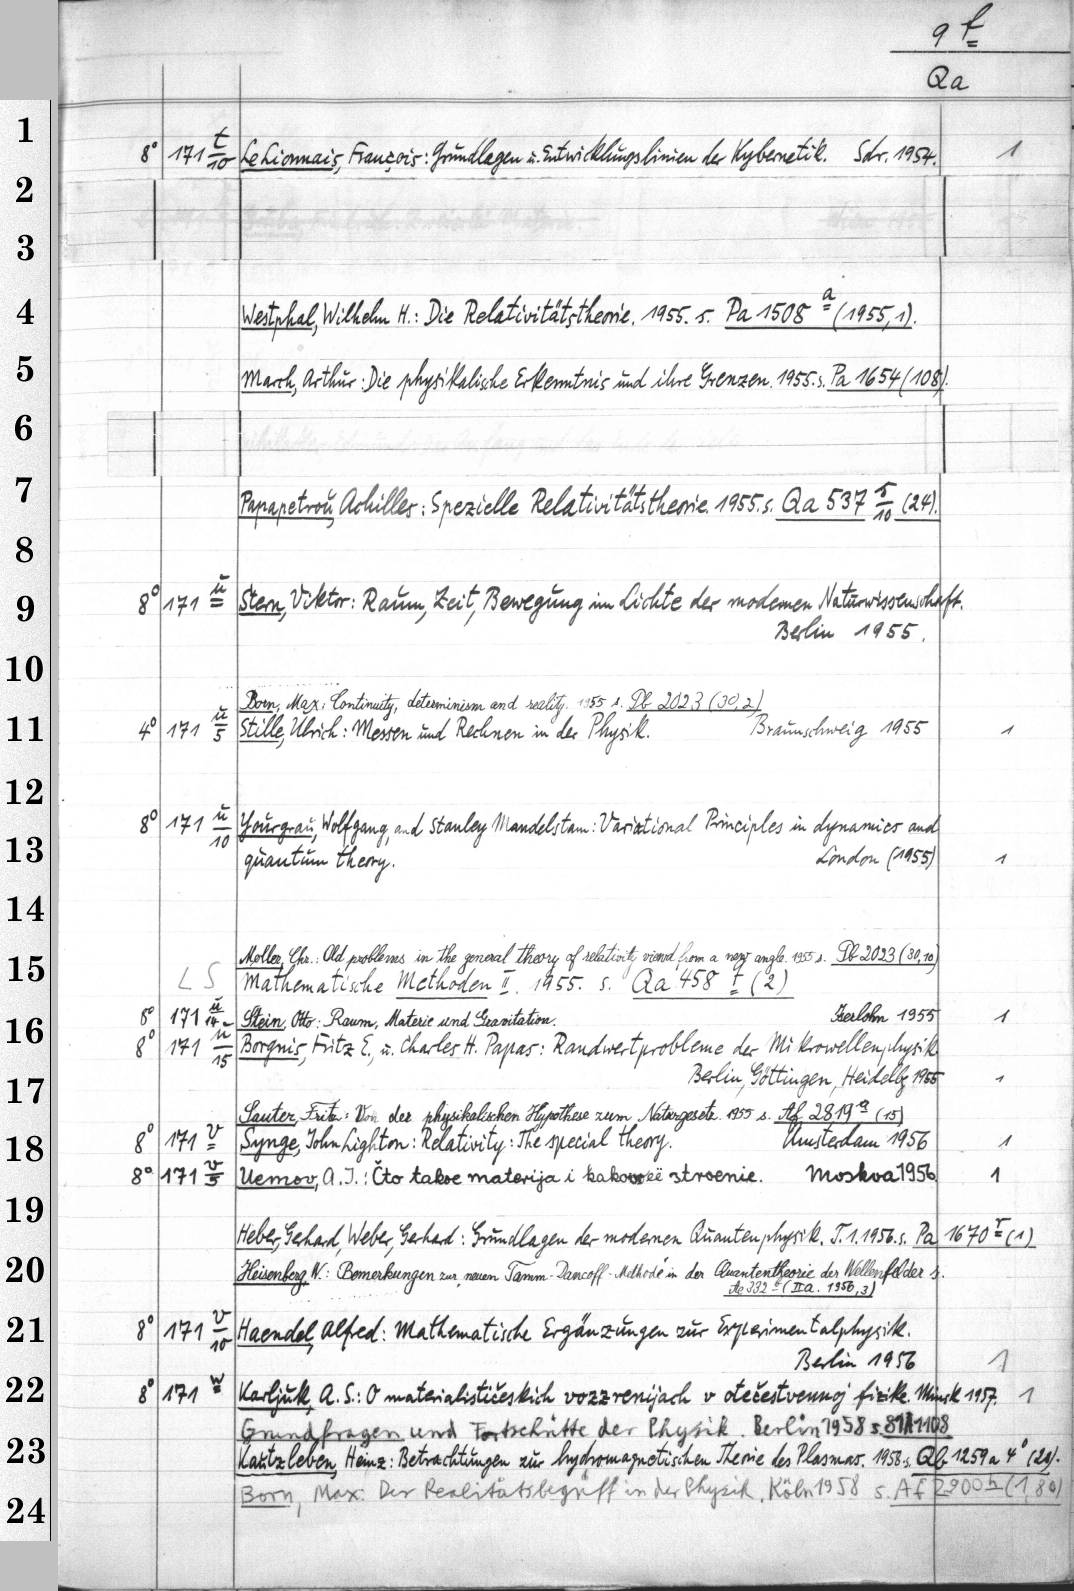 9 f
Qa
1
8° 171 t/10 Le Lionnais, François: Grundlagen u. Entwicklungslinien der Kybernetik. Sdr. 1954. 1
2
3
4 Westphal, Wilhelm H.: Die Relativitätstheorie. 1955. s. Pa 1508 a (1955,1).
5 March, Arthur: Die physikalische Erkenntnis und ihre Grenzen. 1955. s. Pa 1654 (108).
6
7 Papapetrou, Achilles: Spezielle Relativitätstheorie. 1955. s. Qa 537 s/10 (24).
8
9 8° 171 u Stern, Viktor: Raum, Zeit, Bewegung im Lichte der modernen Naturwissenschaft.
Berlin 1955.
10
Born, Max: Continuity, determinism and reality. 1955 s. Db 2023 (30,2)
11 4° 171 u/5 Stille, Ulrich: Messen und Rechnen in der Physik. Braunschweig 1955 1
12
8° 171 u/10 Yourgrau, Wolfgang, and Stanley Mandelstam: Variational Principles in dynamics and
13 quantum theory. London (1955) 1
14
Møller, Chr.: Old problems in the general theory of relativity viewd from a new angle. 1955 s. Db 2023 (30,10)
15 LS Mathematische Methoden II. 1955. s. Qa 458 t (2)
16 8° 171 u/14 Stein, Otto: Raum, Materie und Gravitation. Iserlohn 1955 1
8° 171 u/15 Borgnis, Fritz E. u. Charles H. Papas: Randwertprobleme der Mikrowellenphysik
17 Berlin, Göttingen, Heidelbg 1955 1
Sauter, Fritz: Von der physikalischen Hypothese zum Naturgesetz. 1955 s. Af 2819 a (15)
18 8° 171 v Synge, John Lighton: Relativity: The special theory. Amsterdam 1956 1
8° 171 v/5 Uemov, A. I.: Čto takoe materija i kakovo eë stroenie. Moskva 1956 1
19
Heber, Gerhard, Weber, Gerhard: Grundlagen der modernen Quantenphysik. T. 1. 1956. s. Pa 1670 r (1)
20 Heisenberg, W.: Bemerkungen zur "neuen Tamm-Dancoff-Methode" in der Quantentheorie der Wellenfelder s.
Ac 332 (IIa. 1956,3)
21 8° 171 v/10 Haendel, Alfred: Mathematische Ergänzungen zur Experimentalphysik.
Berlin 1956 1
22 8° 171 w Karljuk, A. S.: O materialističeskich vozzrenijach v otečestvennoj fizike. Minsk 1957. 1
Grundfragen und Fortschritte der Physik. Berlin 1958 s. 1108
23 Kautzleben, Heinz: Betrachtungen zur hydromagnetischen Theorie des Plasmas. 1958. s. Qb 1259 a 4° (20).
24 Born, Max: Der Realitätsbegriff in der Physik. Köln 1958 s. Af 2900 h (1,80)